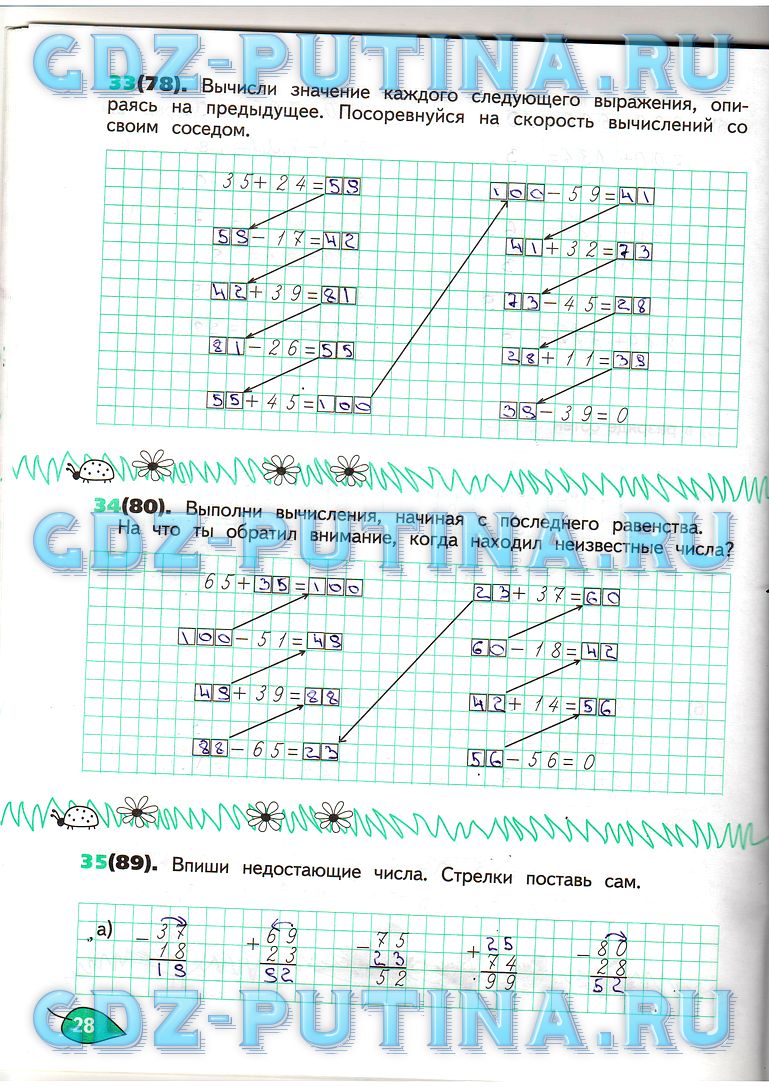 GDZ-PUTINA.RU
33(78). Вычисли значение каждого следующего выражения, опи-
раясь на предыдущее. Посоревнуйся на скорость вычислений со
своим соседом.
35+24=59
59-17=42
42+39=81
81-26=55
55+45=100
100-59=41
41+32=73
73-45=28
28+11=39
39-39=0
34(80). Выполни вычисления, начиная с последнего равенства.
GDZ-PUTINA.RU
На что ты обратил внимание, когда находил неизвестные числа?
65+35=100
100-51=49
49+39=88
88-65=23
23+37=60
60-18=42
42+14=56
56-56=0
35(89). Впиши недостающие числа. Стрелки поставь сам.
а)
- 37 + 69 - 75 + 25 - 80
18 23 23 74 28
19 92 52 99 52
GDZ-PUTINA.RU
28